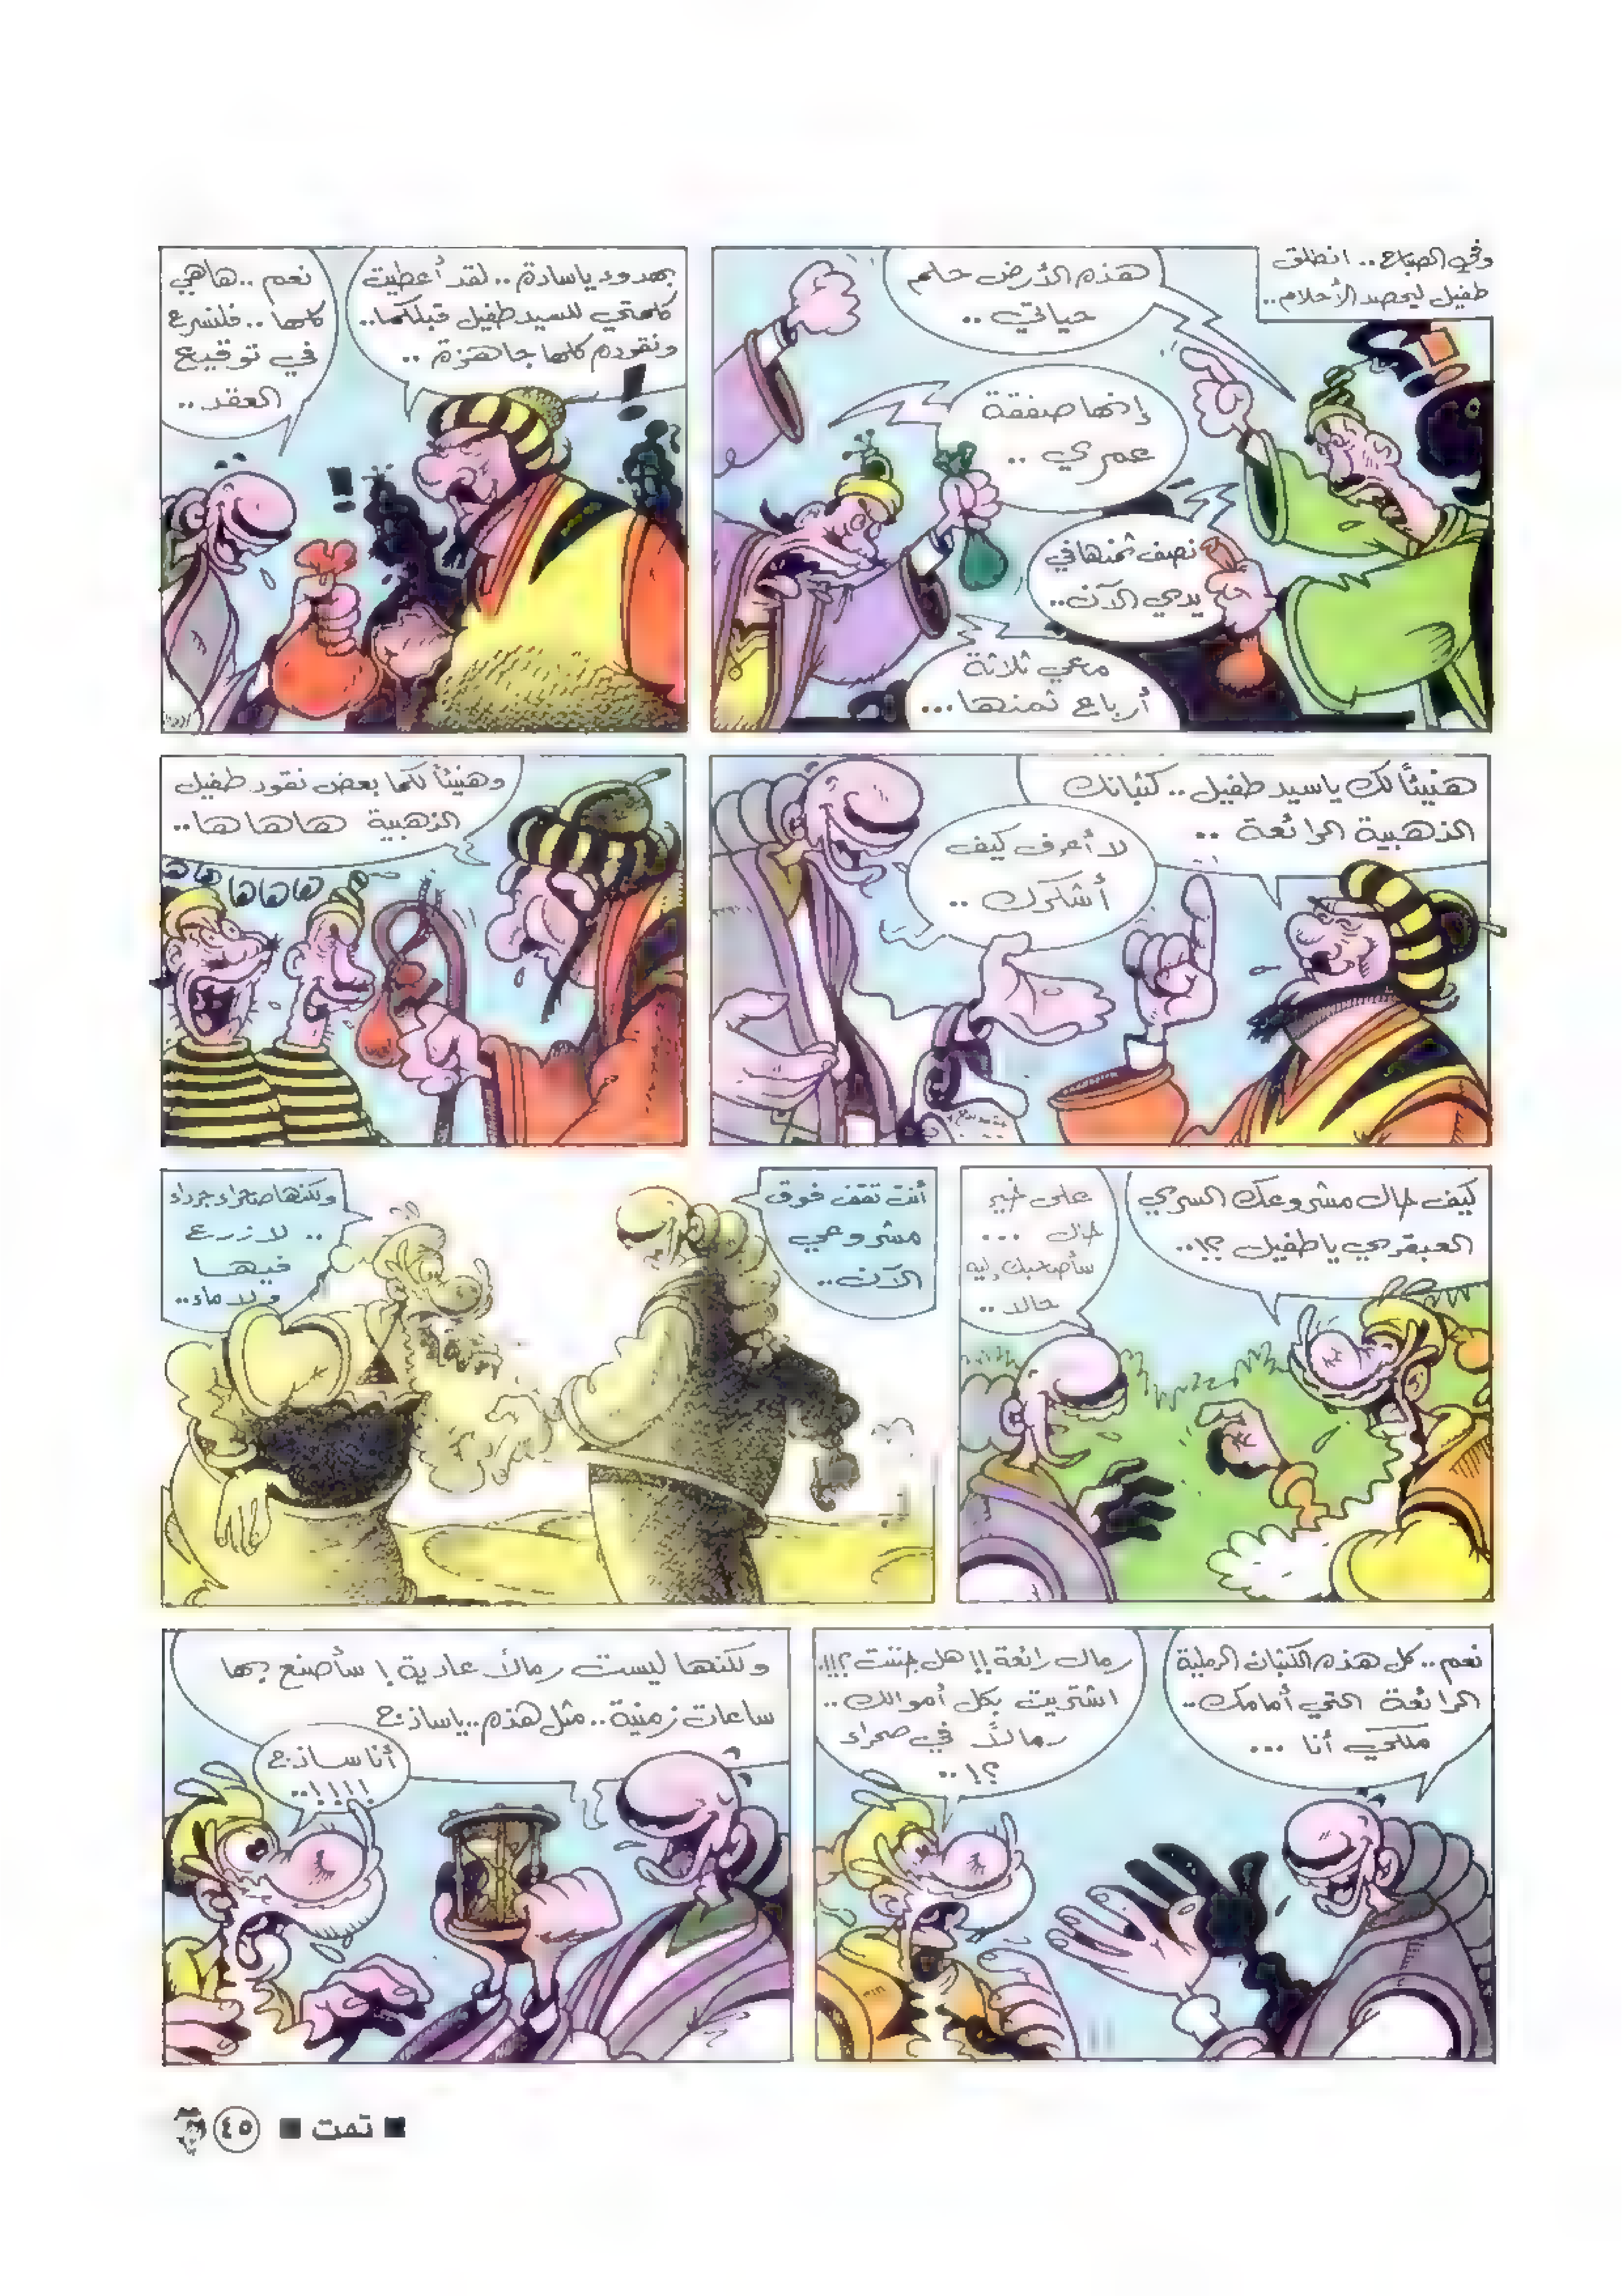 وفي الصباح.. انطلق
طفيل ليحصد الأحلام..
هذه الأرض حلم
حياتي..
إنها صفقة
عمري ..
نصف ثمنها في
يدي الآن..
معي ثلاثة
أرباع ثمنها...
بهدوء ياسادة.. لقد أعطيت
كلمتي للسيد طفيل قبلكما..
ونقوده كلها جاهزة ..
نعم ..هاهي
كلها ..فلنسرع
في توقيع
العقد..
!
!
هنيئاً لك ياسيد طفيل.. كثبانك
الذهبية الرائعة ..
لا أعرف كيف
أشكرك ..
وهنيئاً لكما بعض نقود طفيل
الذهبية هاهاها..
هاها
هاهاها
كيف حال مشروعك السري
العبقري ياطفيل ؟!..
على خير
حال ...
سأصحبك إليه
حالا ..
أنت تقف فوق
مشروعي
الآن..
ولكنها صحراء جرداء
.. لا زرع
فيها
ولا ماء..
نعم.. كل هذه الكثبان الرملية
الرائعة التي أمامك..
ملكي أنا ...
رمال رائعة!! هل جننت؟!!.
اشتريت بكل أموالك..
رمالاً في صحراء
؟!..
ولكنها ليست رمالاً عادية! سأصنع بها
ساعات زمنية.. مثل هذه.. ياساذج
أنا ساذج
!!!!..
■ تمت ■ ٤٥